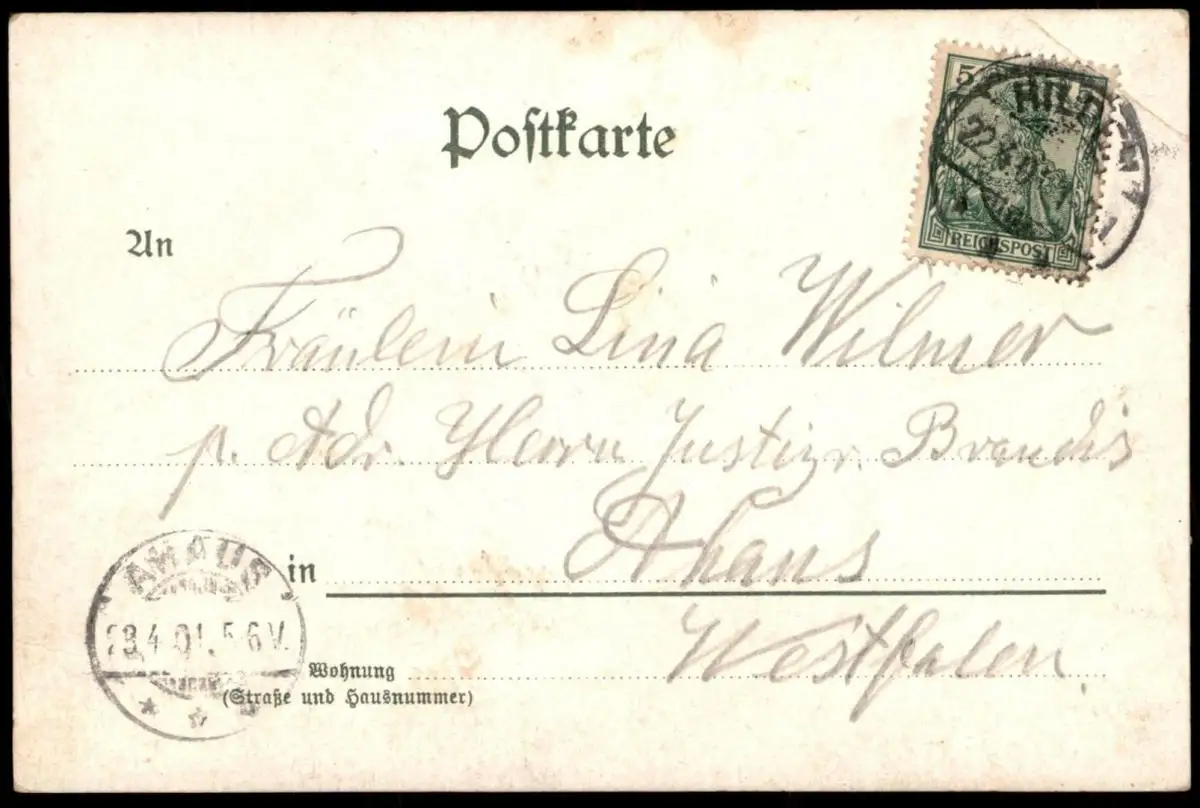 Postkarte
5
22.4.0
REICHSPOST
An
Fräulein Lina Wilmer
p. Adr. Herrn Justizr. Brandis
in Ahaus
Westfalen.
AHAUS
23.4.01. 5-6V.
Wohnung
(Straße und Hausnummer)